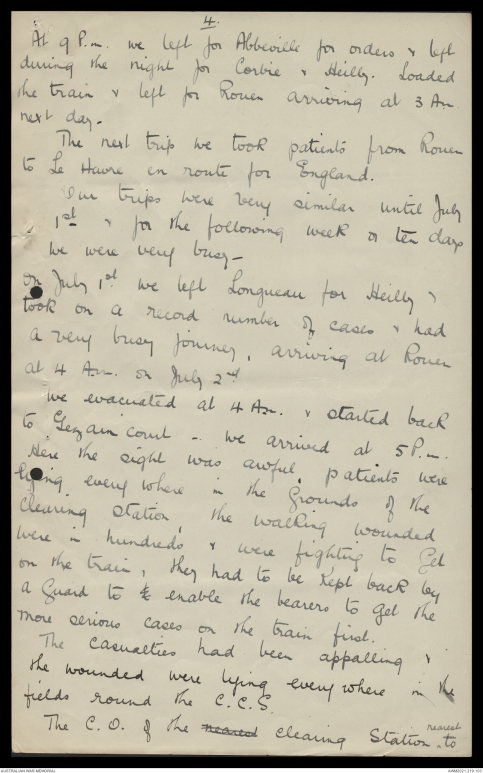 4.
At 9 P.m. we left for Abbeville for orders & left
during the night for Corbie & Heilly. Loaded
the train & left for Rouen arriving at 3 Am.
next day -
The next trip we took patients from Rouen
to Le Havre en route for England.
Our trips were very similar until July
1st & for the following week or ten days
we were very busy -
On July 1st we left Longueau for Heilly &
took on a record number of cases & had
a very busy journey, arriving at Rouen
at 4 A.m. on July 2nd
We evacuated at 4 Am. & started back
to Gezaincourt - we arrived at 5 P.m.
Here the sight was awful, patients were
lying every where in the grounds of the
clearing station, the walking wounded
were in hundreds & were fighting to get
on the train, they had to be kept back by
a guard to enable the bearers to get the
more serious cases on the train first.
The casualties had been appalling &
the wounded were lying every where in the
fields round the C.C.S.
The C.O. of the nearest clearing Station nearest to
AUSTRALIAN WAR MEMORIAL